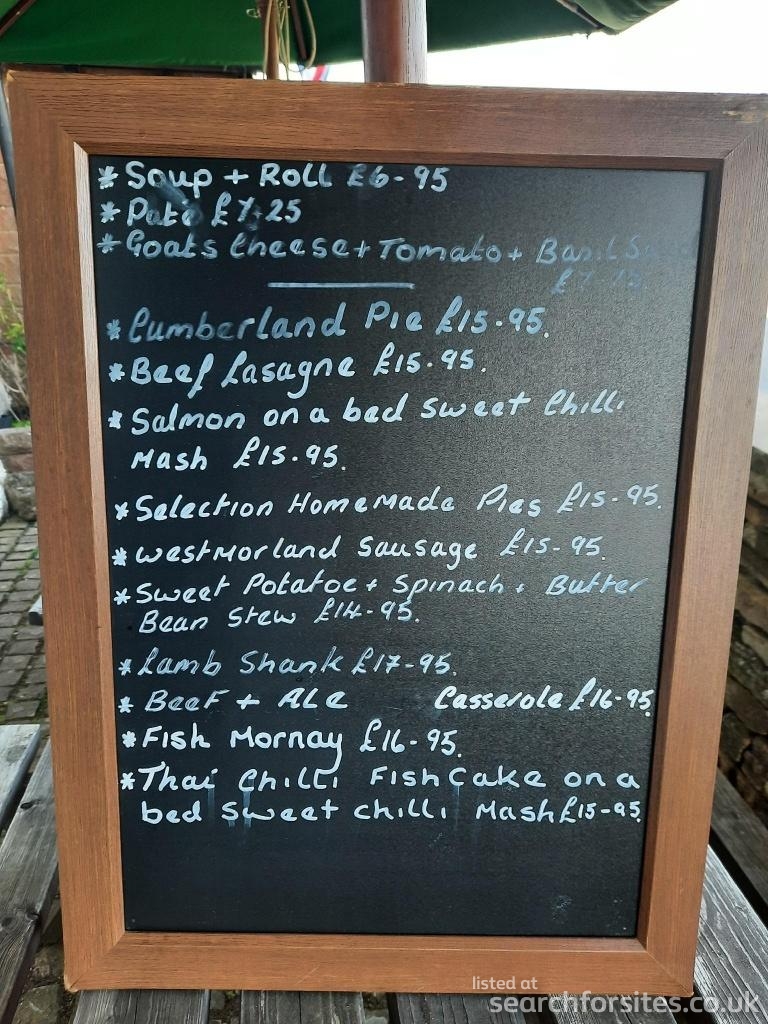 * Soup + Roll £6-95
* Pate £7.25
* Goats Cheese + Tomato + Basil
* Cumberland Pie £15-95.
* Beef Lasagne £15.95.
* Salmon on a bed Sweet Chilli
Mash £15-95.
* Selection Homemade Pies £15-95.
* Westmorland Sausage £15-95.
* Sweet Potatoe + Spinach + Butter
Bean Stew £14-95.
* Lamb Shank £17-95.
* Beef + Ale Casserole £16-95
* Fish Mornay £16-95.
* Thai Chilli Fish Cake on a
bed Sweet chilli Mash £15-95.
listed at
searchforsites.co.uk